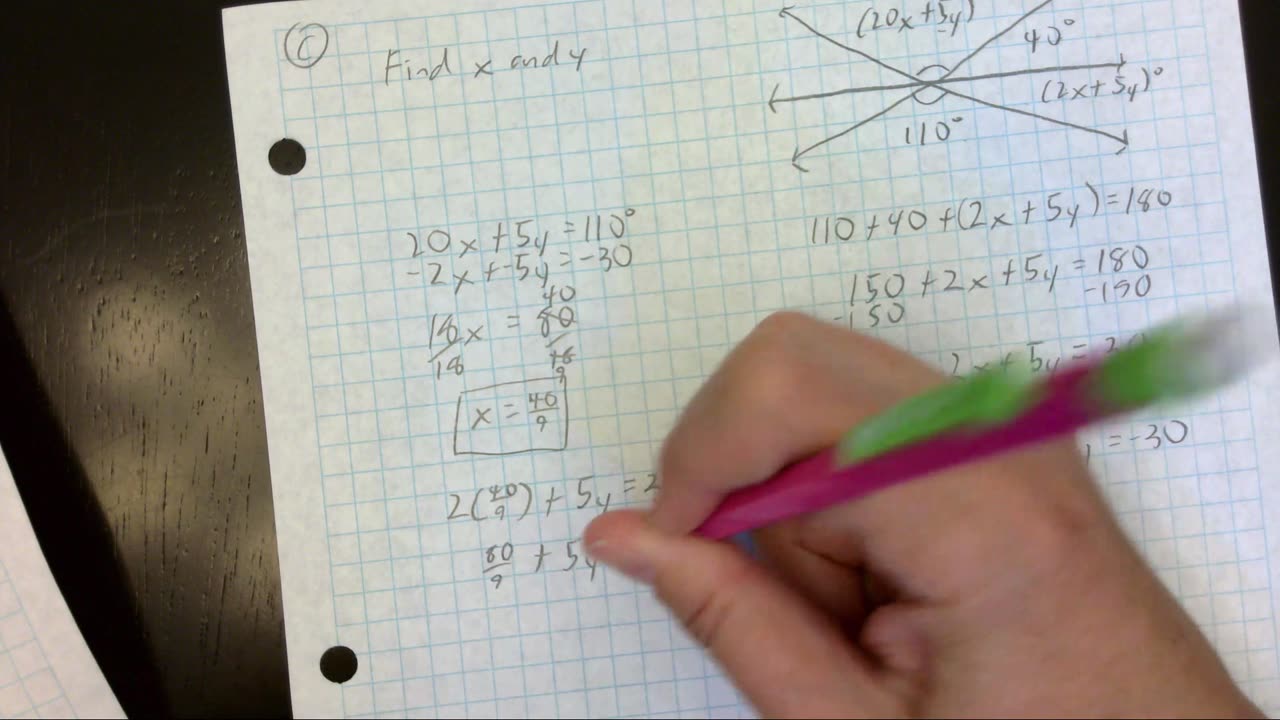 6
Find x and y
(20x+5y)
40°
(2x+5y)°
110°
20x+5y=110°
-2x+-5y=-30
40
18x = 80
18 18
9
x = 40/9
2(40/9) + 5y =
80/9 + 5y
110+40+(2x+5y)=180
150+2x+5y=180
-150 -150
2x+5y=30
=-30